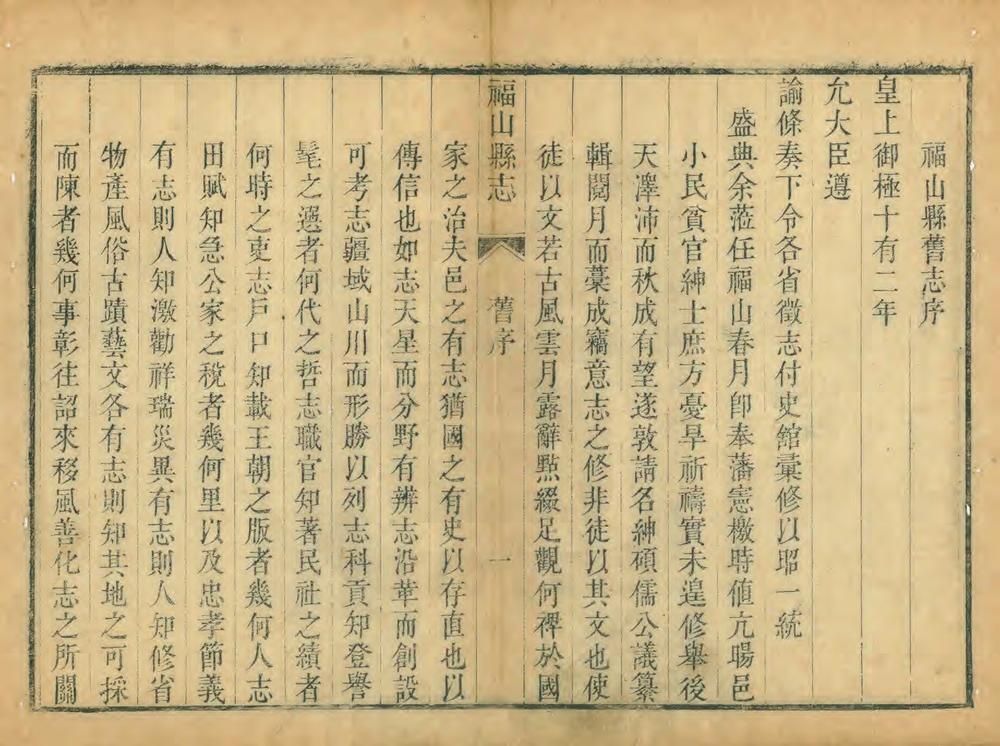 福山縣舊志序
皇上御極十有二年
允大臣遵
諭條奏下令各省徵志付史館彙修以昭一統
盛典余蒞任福山春月卽奉藩憲檄時値亢暘邑
小民貧官紳士庶方憂旱祈禱實未遑修舉後
天澤沛而秋成有望遂敦請名紳碩儒公議纂
輯閱月而藁成竊意志之修非徒以其文也使
徒以文若古風雲月露辭點綴足觀何裨於國
福山縣志 舊序 一
家之治夫邑之有志猶國之有史以存直也以
傳信也如志天星而分野有辨志沿革而創設
可考志疆域山川而形勝以列志科貢知登譽
髦之選者何代之哲志職官知著民社之績者
何時之吏志戶口知載王朝之版者幾何人志
田賦知急公家之稅者幾何里以及忠孝節義
有志則人知激勸祥瑞災異有志則人知修省
物產風俗古蹟藝文各有志則知其地之可採
而陳者幾何事彰往詔來移風善化志之所關